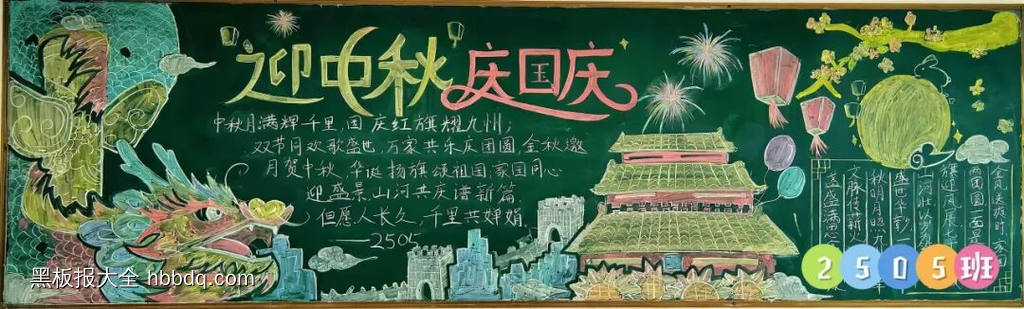 迎中秋 庆国庆
中秋月满辉千里,国庆红旗耀九州;
双节同欢歌盛世,万家共乐庆团圆 金秋邀
月贺中秋,华诞扬旗颂祖国,家国同心
迎盛景,山河共庆谱新篇
但愿人长久,千里共婵娟
——2505
金风送爽时
两团圆
旗迎风展
山河壮
盛世华彰
秋明月照九
文脉传薪
盏盏盛满
2505班
黑板报大全 hbbdq.com